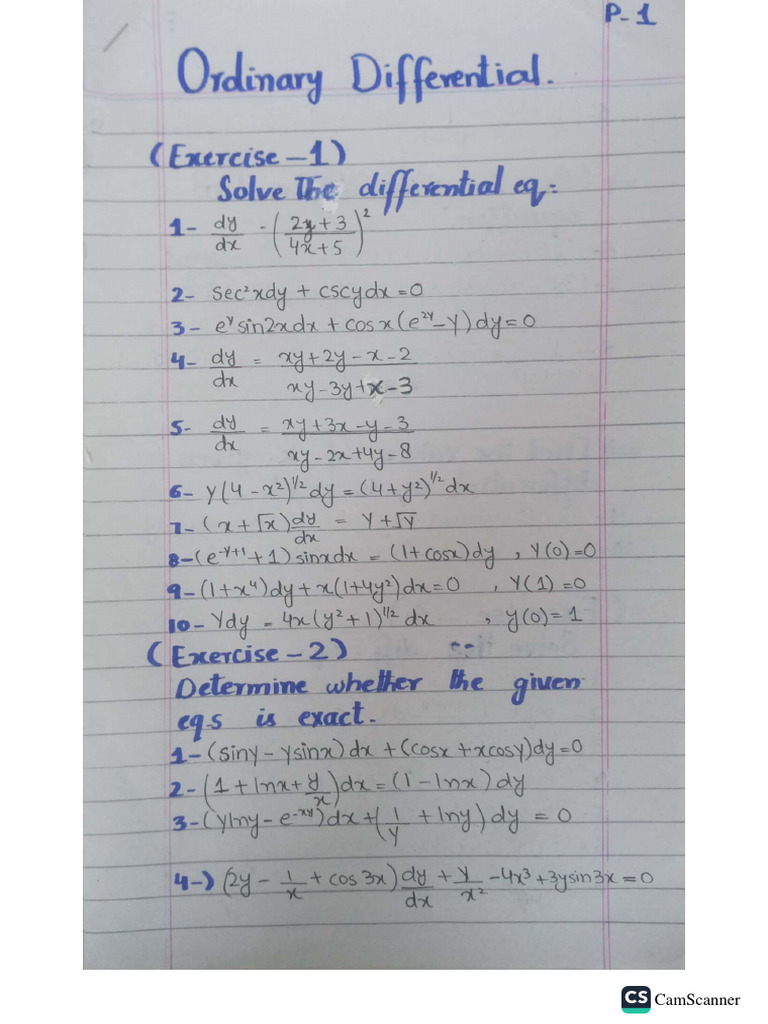 P-1
Ordinary Differential.
(Exercise-1)
Solve The differential eq:
1- dy/dx - (2y+3/4x+5)²
2- sec²xdy + cscydx=0
3- eʸsin2xdx + cosx(e²ʸ-y)dy=0
4- dy/dx = xy+2y-x-2/xy-3y+x-3
5- dy/dx = xy+3x-y-3/xy-2x+4y-8
6- y(4-x²)^1/2 dy=(4+y²)^1/2 dx
7- (x+√x)dy/dx = y+√y
8- (e^-y+1 +1) sinxdx = (1+cosx)dy , y(0)=0
9- (1+x⁴)dy+x(1+4y²)dx=0 , y(1)=0
10- ydy = 4x(y²+1)^1/2 dx , y(0)=1
(Exercise-2)
Determine whether the given
eq.s is exact.
1- (siny-ysinx)dx+(cosx+xcosy)dy=0
2- (1+lnx+y/x)dx=(1-lnx)dy
3- (ylny-e^-xy)dx+(1/y+lny)dy=0
4-) (2y-1/x+cos3x)dy/dx+y/x²-4x³+3ysin3x=0
CS CamScanner